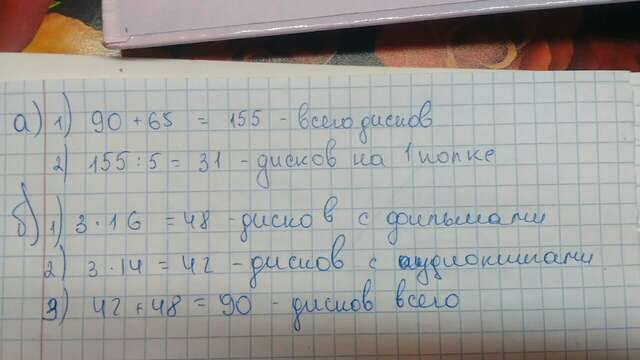 а) 1) 90 + 65 = 155 - всего дисков
2) 155 : 5 = 31 - дисков на 1 полке
б) 1) 3 · 16 = 48 - дисков с фильмами
2) 3 · 14 = 42 - дисков с аудиокнигами
3) 42 + 48 = 90 - дисков всего